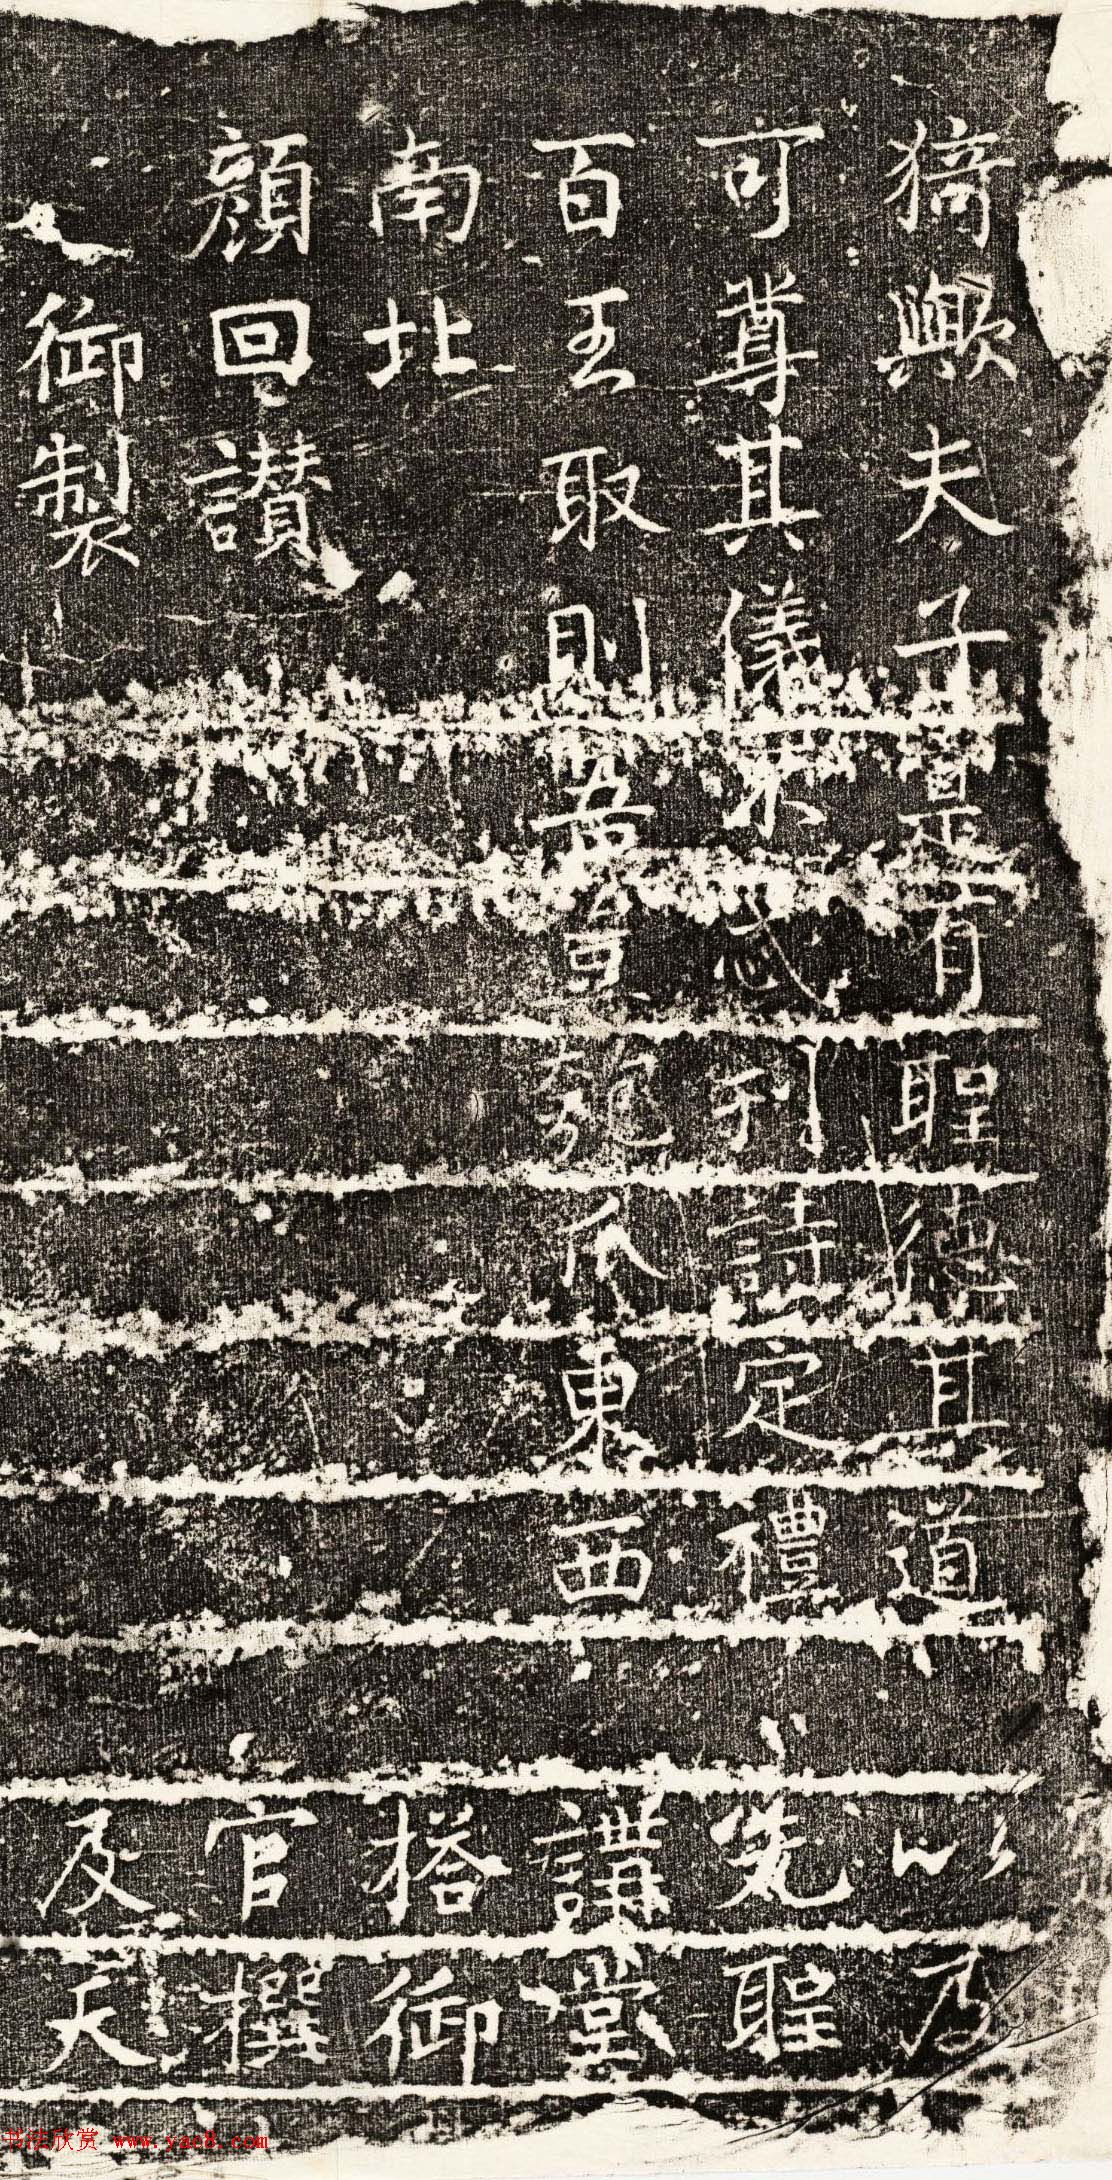 猗歟夫子寔有聖德其道
可尊其儀不忒刪詩定禮
百王取則吾豈匏瓜東西
南北
顏回讚
御製
以乃
先聖
講堂
搭御
官撰
及天
书法欣赏 www.yac8.com